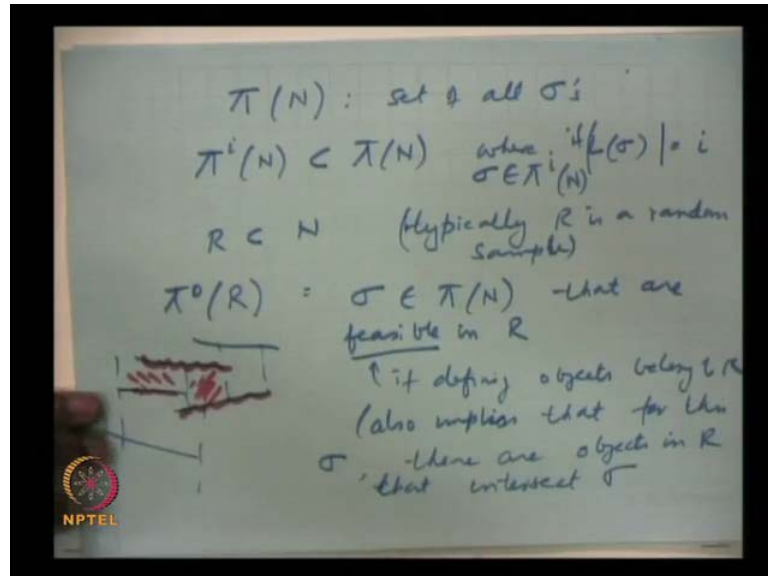 π(N) : set of all σ's
πⁱ(N) ⊂ π(N) where σ ∈ πⁱ(N) if |L(σ)| = i
R ⊂ N (typically R is a random sample)
π⁰(R) = σ ∈ π(N) that are
feasible in R
↑ if defining objects belong to R
(also implies that for this
σ there are objects in R
that intersect σ
NPTEL